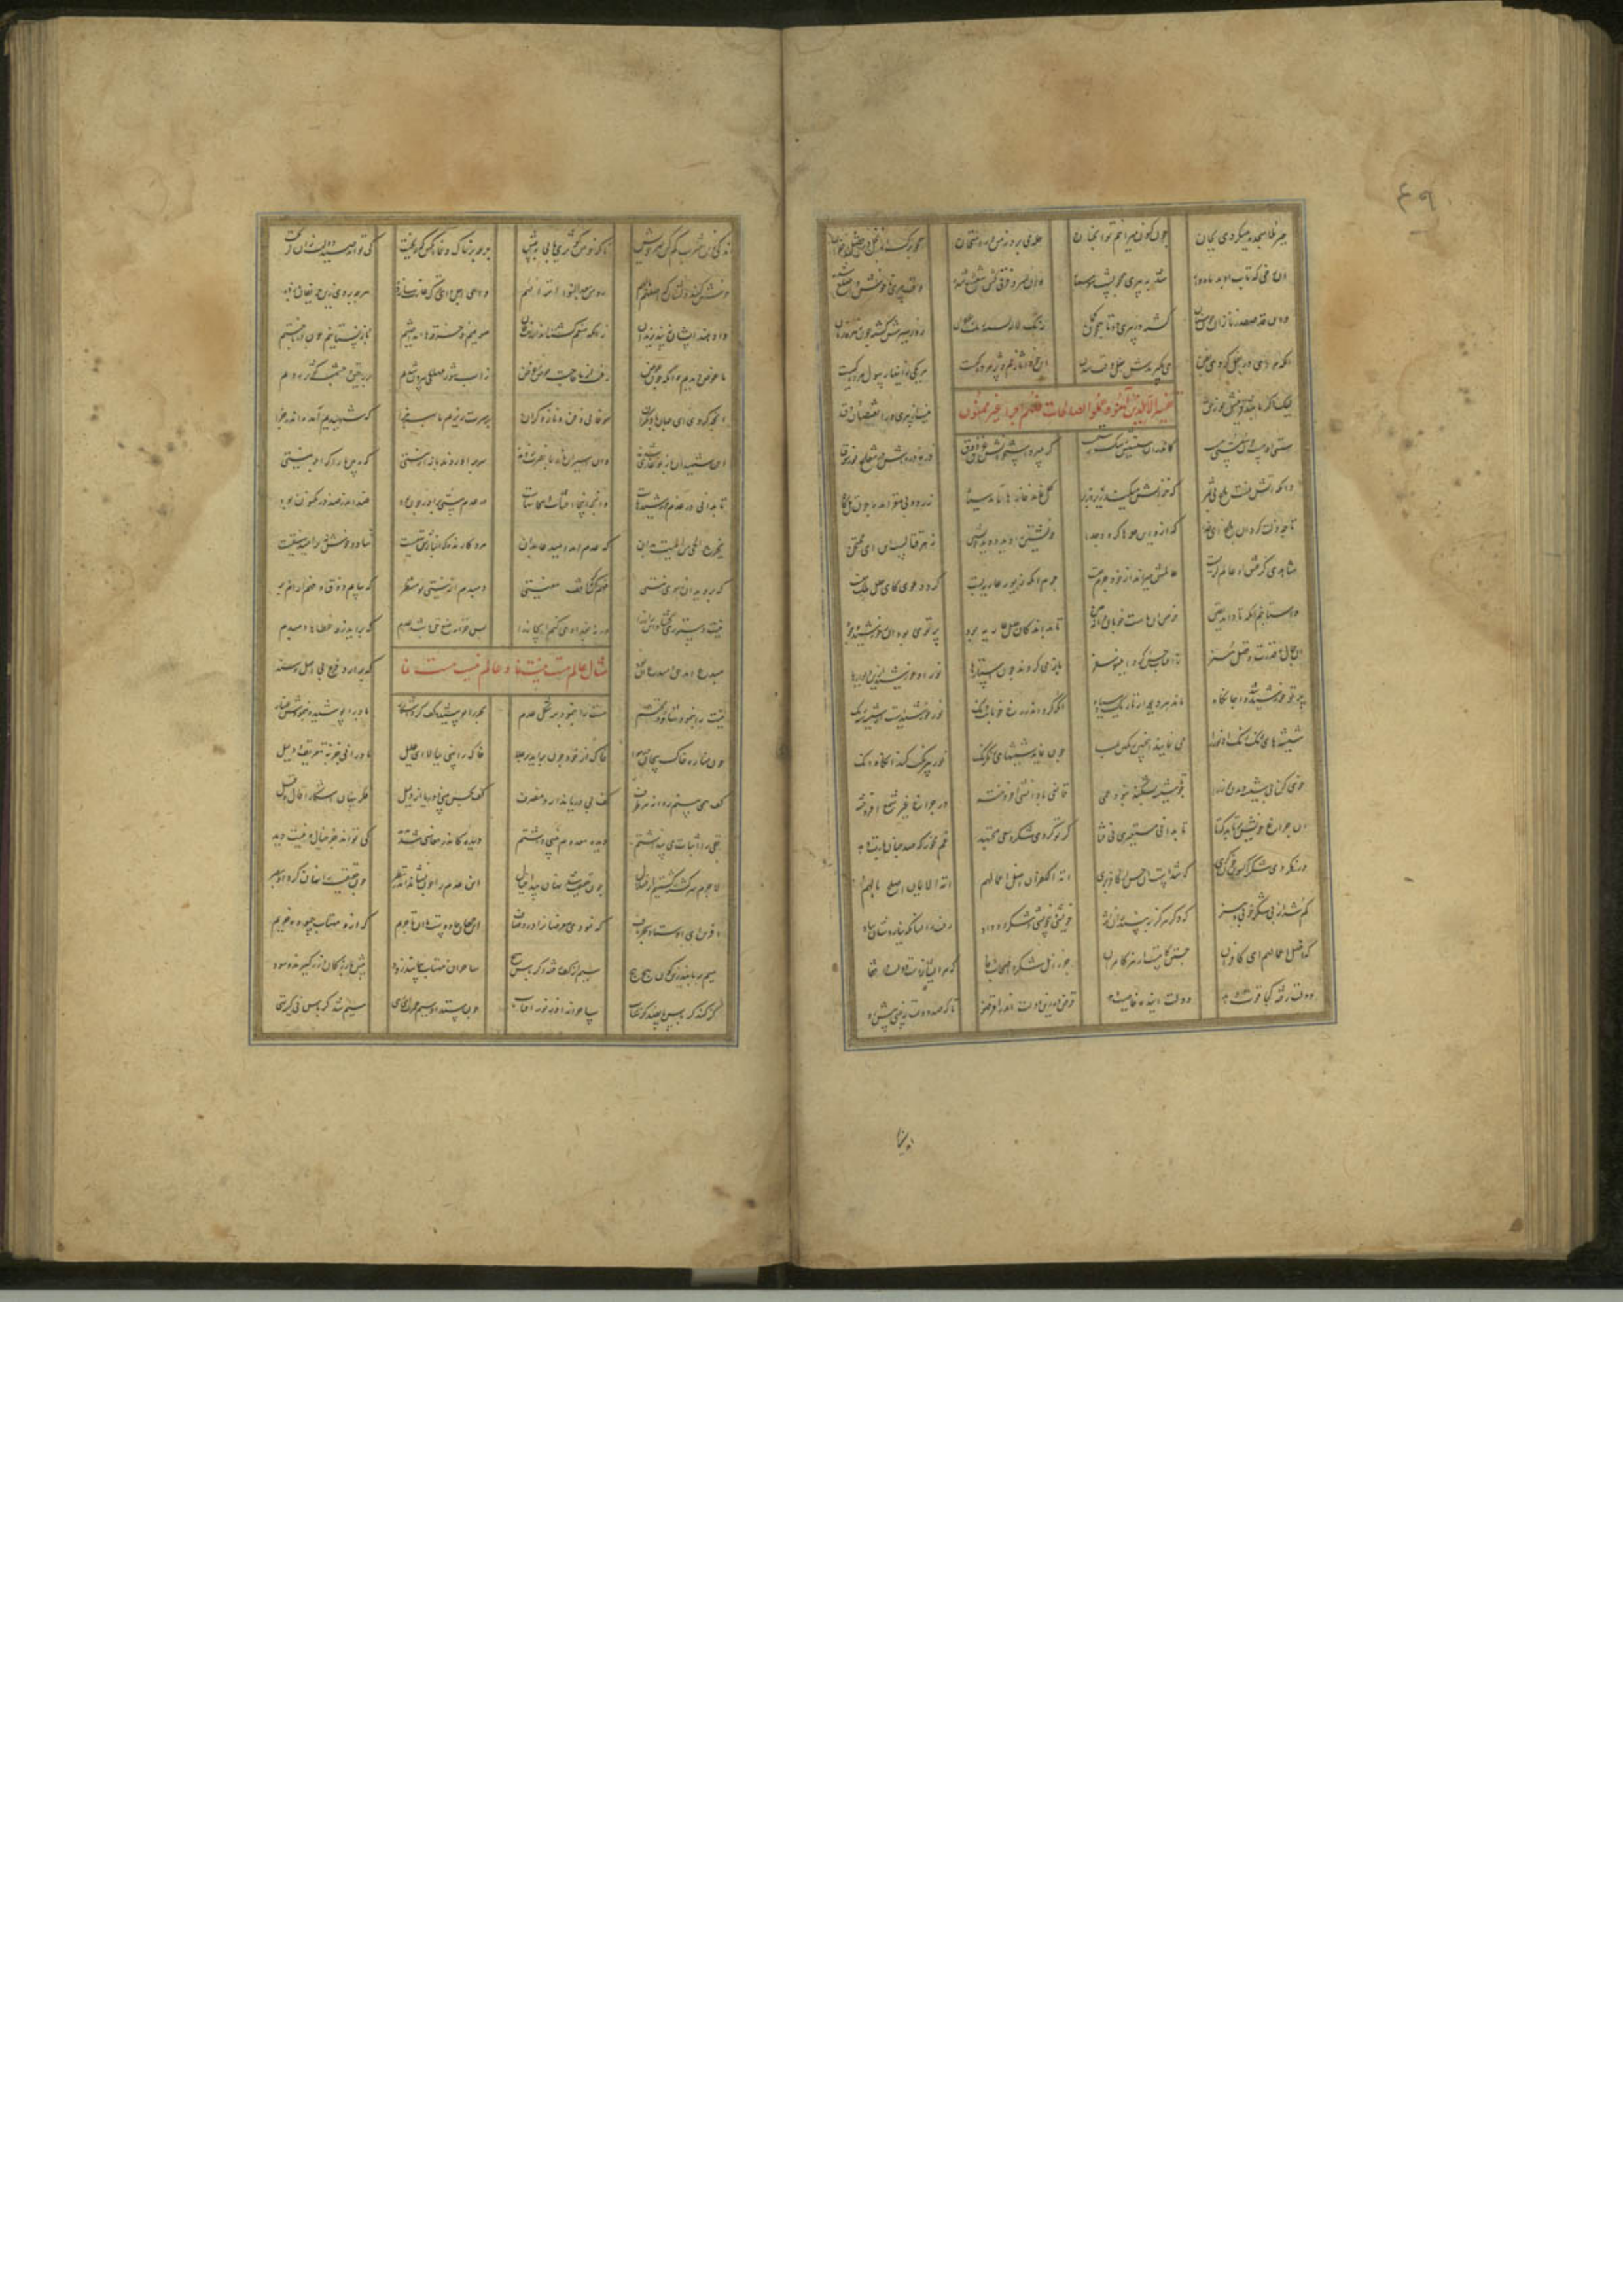 ۴۹
جبرئیلا سجده میکردی بجان چون کنون میرانیم تو از جنان حله می پرد ز من در امتحان همچو برگ از نخل در فصل خزان
آن رخی که تاب او بد ماه وار شد به پیری همچو پشت سوسمار وان سر و فرق کش شعشع شده وقت پیری ناخوش و اصلع شده
وان قد صفدر نازان چون سنان گشته در پیری دوتا همچون کمان رنگ لاله گشته رنگ زعفران زور شیرش گشته چون زهره زنان
آنکه مردی در بغل کردی بفن می بگیرندش بغل وقت شدن این خود آثار غم و پژمردگیست هر یکی زینها رسول مردگیست
تفسیر الا الذین آمنوا و عملوا الصالحات فلهم اجر غیر ممنون
لیک اگر باشد نور حق نیست از پیری ورا نقصان و دق
سستی او هست چون سستی مست کاندر آن سستیش رشک ذره ذره ش در شعاع نور شوق
وانکه آنش نیست باغ بی ثمر که خزانش میکند زیر و زبر گل نماند خارها ماند سیاه زرد و بی مغز آمده چون تل کاه
تا چه زلت کرد آن باغ ای خدا که ازو این حله ها گردد جدا خویشتن را دید و دید خویشتن زهر قتالست این ای ممتحن
شاهدی کز عشق او عالم گریست عالمش میراند از خود جرم چیست جرم آنکه زیور عاریه بست کرد دعوی کاین حلل ملک منست
واستانیم آنکه تا داند یقین خرمن آن ماست خوبان دانه چین تا بداند کان حلل عاریه بود پرتوی بود آن ز خورشید وجود
آن جمال و قدرت و فضل و هنر ز آفتاب حسن کرد این سو سفر باز می گردند چون استارها نور آن خورشید ازین دیوارها
پرتو خورشید شد وا جایگاه ماند هر دیوار تاریک و سیاه آنکه کرد او در رخ خوبانت دنگ نور خورشیدست از شیشه سه رنگ
شیشه های رنگ رنگ آن نور را می نمایند این چنین رنگین بما چون نماند شیشهای رنگ رنگ نور بیرنگت کند آنگاه دنگ
خوی کن بی شیشه دیدن نور را تا چو شیشه بشکند نبود عمی قانعی با دانش آموخته در چراغ غیر چشم افروخته
او چراغ خویش برباید که تا تا بدانی مستعیری نی فتا گر تو کردی شکر و سعی مجتهد غم مخور که صد چنان بازت دهد
ور نکردی شکر اکنون خون گری که شدست آن حسن از کافر بری امة الکفران اضل اعمالهم امة الایمان اصلح بالهم
گم شد از بی شکر خوبی و هنر که دگر هرگز نبیند زان اثر خویشی و بی خویشی و شکر و وداد رفت زان سان که نیاردشان بیاد
که اضل اعمالهم ای کافران جستن کامست از هر کامران جز ز اهل شکر و اصحاب وفا که مر ایشان راست دولت در قفا
دولت رفته کجا قوت دهد دولت آینده خاصیت دهد قرض ده زین دولت اندر اقرضوا تا که صد دولت ببینی پیش رو
اندکی زین شرب کم کن بهر خویش تا که حوض کوثری یابی به پیش جرعه بر خاک وفا آنکس که ریخت کی تواند صید دولت زو گریخت
خوش کند دلشان که اصلح بالهم رد من بعد التوی انزالهم ای اجل وی ترک غارت ساز ده هر چه بردی زین شکوران باز ده
وا دهد ایشان بنپذیرند آن زانکه منعم گشته اند از رخت جان صوفییم و خرقه ها انداختیم باز نستانیم چون در باختیم
ما عوض دیدیم آنگه چون عوض رفت از ما حاجت و حرص و غرض ز آب شور و مهلکی بیرون شدیم بر رحیق و چشمه کوثر زدیم
آنچه کردی ای جهان با دیگران بیوفائی و فن و ناز گران بر سرت ریزیم ما بهر جزا که شهیدیم آمده اندر غزا
این شهیدان باز نو غازی شدند وین اسیران باز بر نصرت زدند سر برآوردند باز از نیستی که ببین ما را گر اکمه نیستی
تا بدانی در عدم خورشیدهاست وانچه اینجا آفتاب آنجا سهاست در عدم هستی برادر چون بود ضد اندر ضد چون مکنون بود
یخرج الحی من المیت بدان که عدم آمد امید عابدان مرد کارنده که انبارش تهیست شاد و خوش نی بر امید نیستیست
که بروید آن ز سوی نیستی فهم کن گر واقف معنیستی دمبدم از نیستی تو منتظر که بیابی فهم و ذوق آرام و بر
نیست دستوری گشاد این راز را ورنه بغدادی کنم ابخاز را پس خزانه صنع حق باشد عدم که برآرد زو عطاها دمبدم
مبدع آمد حق و مبدع آن بود که برآرد فرع بی اصل و سند
مثال عالم هست نیست نما و عالم نیست هست نما
نیست را بنمود هست و محتشم هست را بنمود بر شکل عدم بحر را پوشید و کف کرد آشکار باد را پوشید و بنمودت غبار
چون مناره خاک پیچان در هوا خاک از خود چون برآید بر علا خاک را بینی ببالا ای علیل باد را نی جز به تعریف دلیل
کف همی بینی روانه هر طرف کف بی دریا ندارد منصرف کف بحس بینی و دریا از دلیل فکر پنهان آشکارا قال و قیل
نفی را اثبات می پنداشتیم دیده معدوم بینی داشتیم دیده کاندر نعاسی شد کی تواند جز خیال و نیست دید
لاجرم سرگشته گشتیم از ضلال چون حقیقت شد نهان پیدا خیال این عدم را چون نشاند اندر نظر چون حقیقت را نهان کرد از بصر
آفرین ای اوستاد سحرباف که نمودی معرضان را درد صاف این جهان جادوست ما آن تاجریم که ازو مهتاب پیموده خریم
سیم بربایند زین گون پیچ پیچ سیم از کف رفته و کرباس هیچ ساحران مهتاب پیمایند زود پیش بازرگان و زر گیرند سود
گز کند کرباس پانصد گز شتاب ساحرانه او ز نور ماهتاب چون ستد او سیم عمرت ای رهی سیم شد کرباس نی کیسه تهی